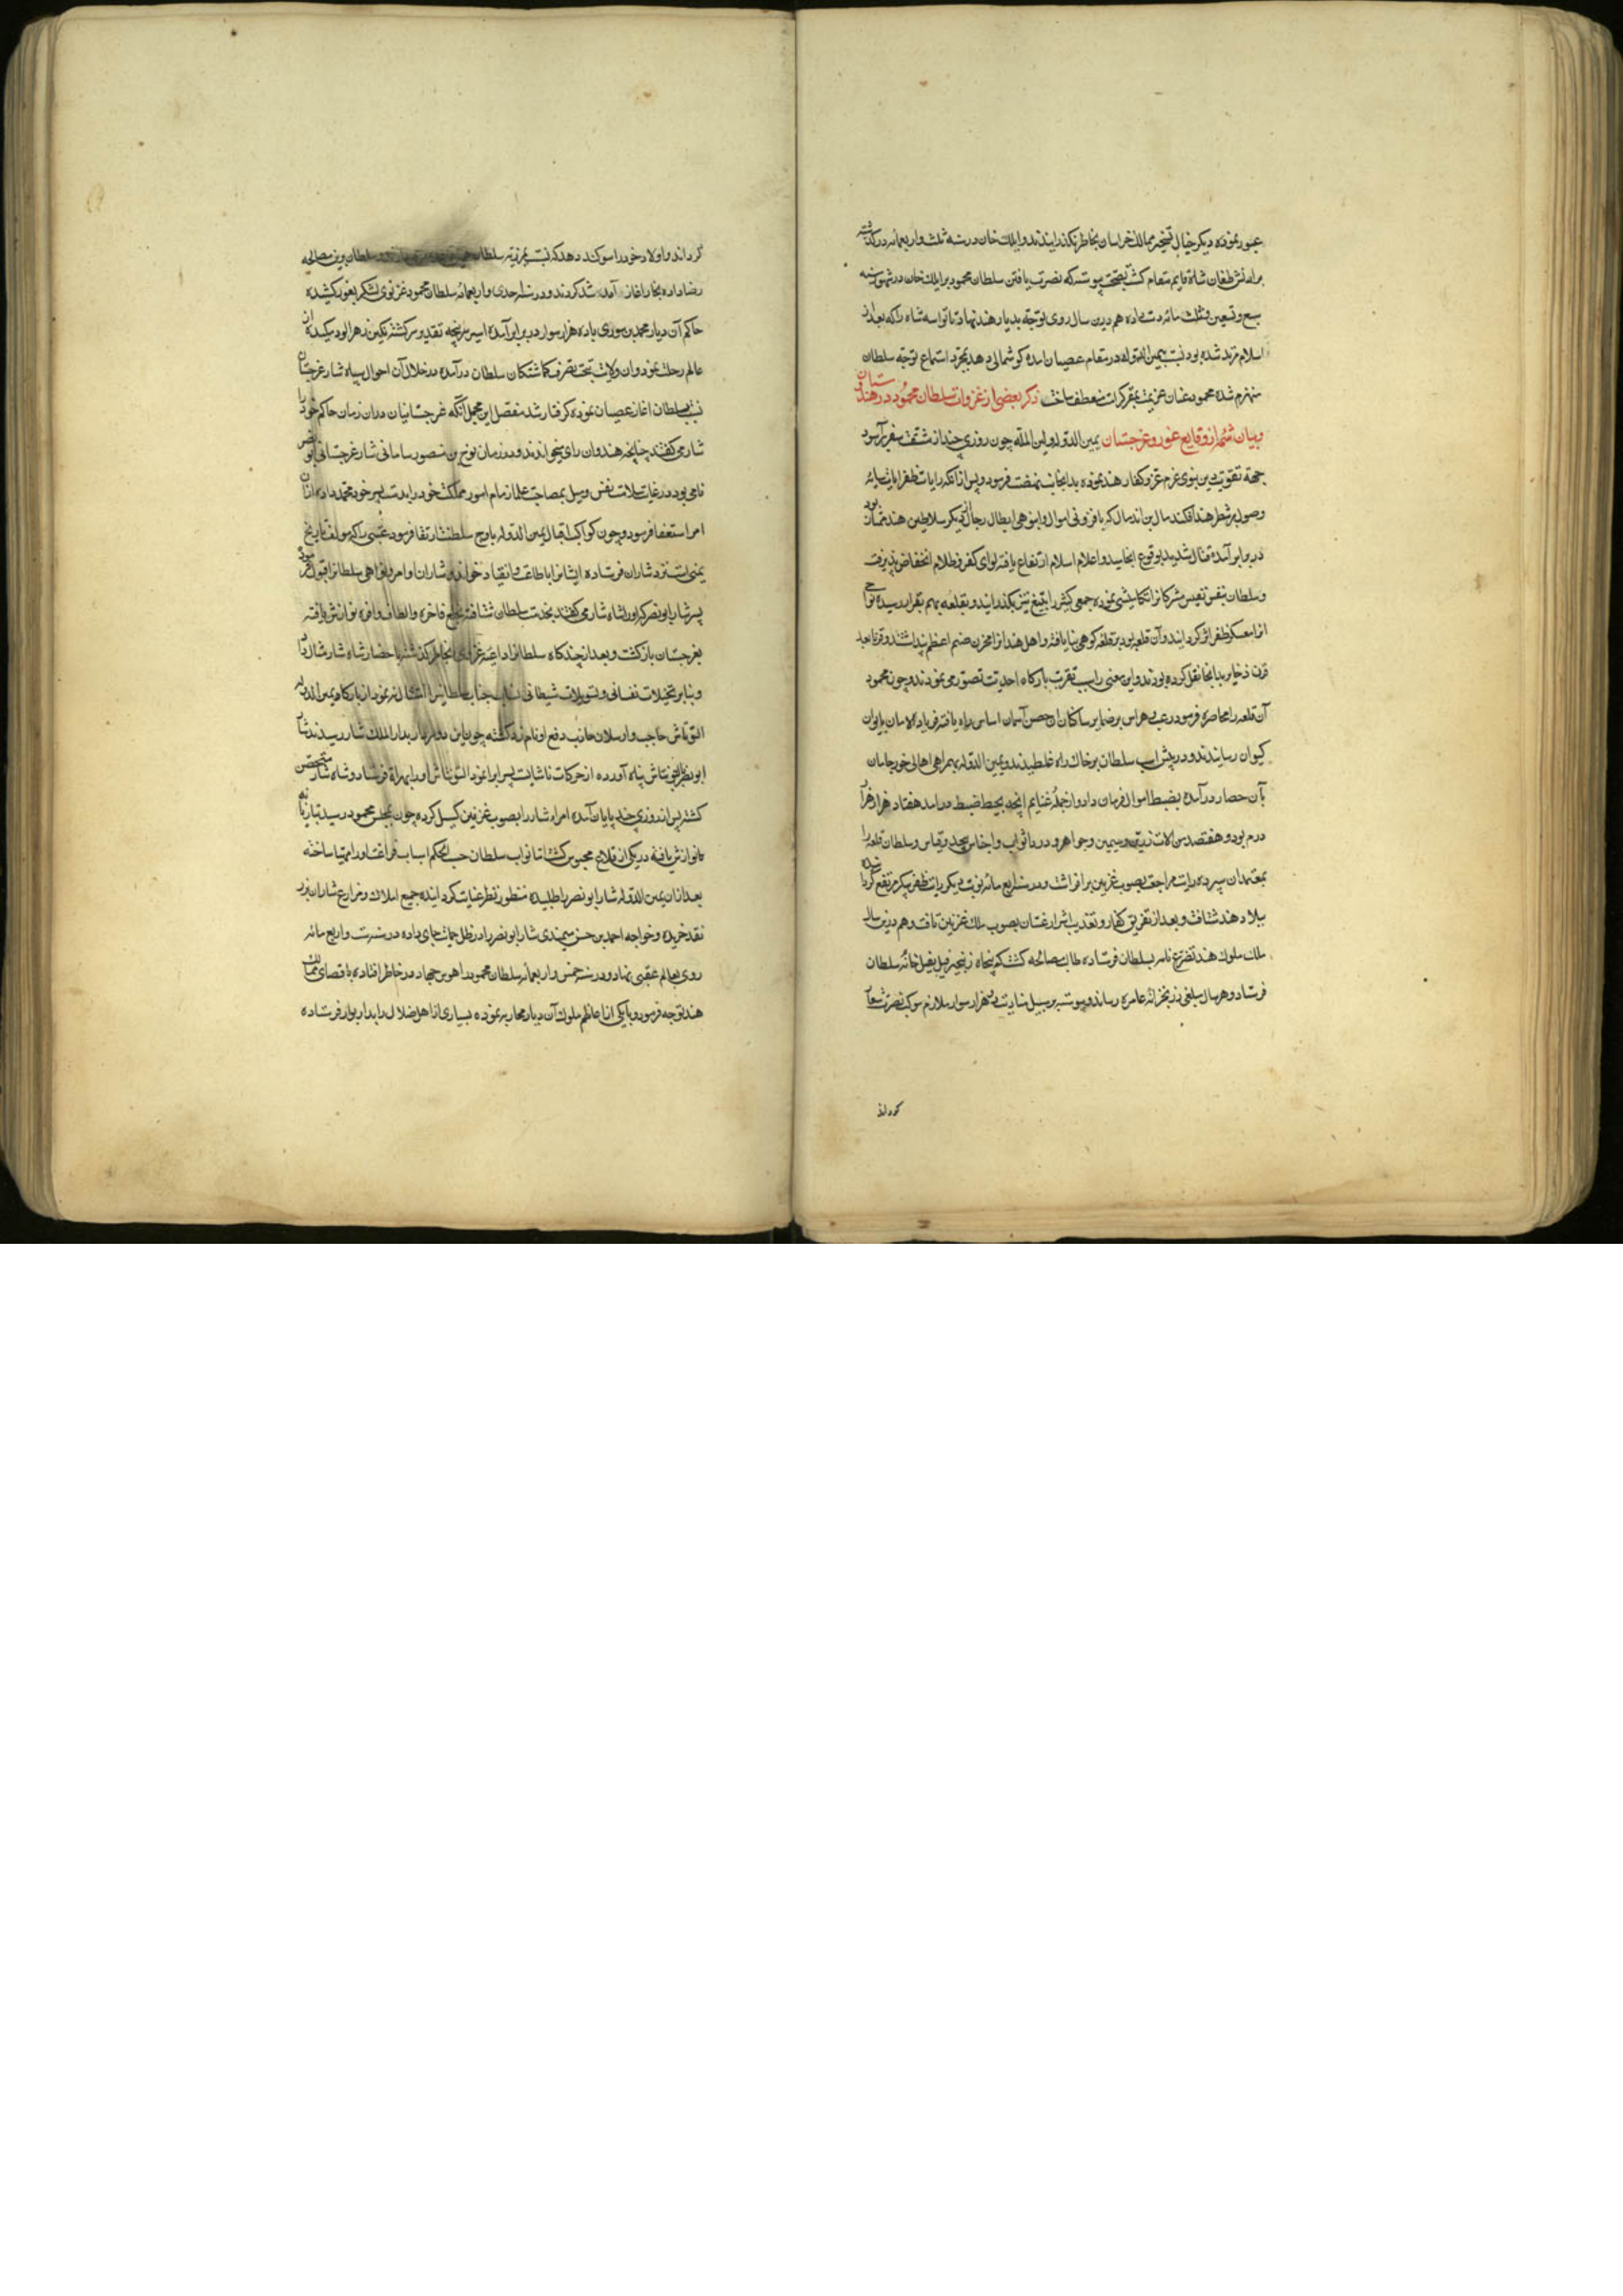 عبور نموده دیکر خیال تسخیر ممالک خراسان بخاطر نکذرانیدند و ایلک خان در سنه ثلث و اربعمائه درکذشته
برادرش طغان شاه قایم مقام کشت بصحت پیوسته که نصرت یافتن سلطان محمود بر ایلک خان در شهور سنه
سبع و تسعین و ثلث مائه دست داده هم درین سال روی توجه بدیار هند نهاد تا نواسه شاه را که بعد از
اسلام مرتد شده بود نسبت بیمین الدوله در مقام عصیان امده کوشمالی دهد بمجرد استماع توجه سلطان
منهزم شده محمود عنان عزیمت بمقر کرامت منعطف ساخت ذکر بعضی از غزوات سلطان محمود در هندستان
و بیان شمه از وقایع غور و غرجستان یمین الدوله و امین المله چون روزی چند از مشقت سفر برآسود
جهة تقویت دین نبوی عزم غزو کفار هند نموده بدانجانب نهضت فرمود و پس از انکه رایات ظفر ایات سایه
وصول بر شطر هند افکند سال بن اندسال که بافزونی اموال و انبوهی ابطال رجال از دیکر سلاطین هند ممتاز بود
در برابر آمده قتال شدید بوقوع انجامید و اعلام اسلام ارتفاع یافته لوای کفر و ظلام انخفاض پذیرفت
و سلطان بنفس نفیس مشرکانرا تکامیشی نموده جمعی کثیر را بتیغ تیز بکذرانید و بقلعه بهیم بقرا رسیده نواحی
انرا معسکر ظفر اثر کردانید و آن قلعه بود بر قلعه کوهی بنا یافته و اهل هند انرا مخزن صنم اعظم پنداشتند و قرنا بعد
قرن ذخایر بدانجا نقل کرده بودند و این معنی را سبب تقرب بارکاه احدیت تصور می نمودند و چون محمود
آن قلعه را محاصره فرمود رعب و هراس بر ضمایر ساکنان ان حصن آسمان اساس راه یافته فریاد الامان بایوان
کیوان رسانیدند و در پیش اسب سلطان بر خاک راه غلطیدند و یمین الدوله بهمراهی اهالی خورجامان
بآن حصار درآمده بضبط اموال فرمان داد و از جمله غنایم انچه بحیطه ضبط درامد هفتاد هزار هزار
درم بود و هفتصد من الات زرین و سیمین و جواهر و درر و اثواب و اجناس بیحد و قیاس و سلطان قلعه را
بمعتمدان سپرده رایت مراجعت بصوب غزنین برافراشت و در سنه اربع مائه نوبت دیکر رایت ظفر پیکر مرتفع کردانیده
ببلاد هند شتافت و بعد از تفریق کفار و تعذیب اشرار عنان بصوب ملک غزنین تافت و هم درین سال
ملک ملوک هند تضرع نامه بسلطان فرستاده طالب مصالحه کشت که پنجاه زنجیر فیل بفیل خانه سلطان
فرستاد و هر سال مبلغی زر بخزانه عامره رساند و پیوسته بر سبیل مناوبت دو هزار سوار ملازم موکب نصرت شعار
کرداند
کرداند و اولاد خود را سوکند دهد که نسبت بغزنیه سلطان و سلطان بدین مصالحه
رضا داده تجار اغاز آمد شد کردند و در سنه احدی و اربعمائه سلطان محمود غزنوی لشکر بغور کشیده
حاکم آن دیار محمد بن سوری با ده هزار سوار در برابر آمده اسیر سرپنجه تقدیر سرکشته نکین زهرالود مکیده از
عالم رحلت نمود و ان ولایت بتحت تصرف کماشتکان سلطان درآمده در خلال آن احوال سپاه شار غرجستان
نسبت بسلطان اغاز عصیان نموده کرفتار شد مفصل این مجمل آنکه غرجستانیان دران زمان حاکم خود را
شار می کفتند چنانچه هندوان رای میخوانند و در زمان نوح بن منصور سامانی شار غرجستانی ابو نصر
نامی بود در غایت سلامت نفس و میل بمصاحبت علما زمام امور مملکت خود را بدست پسر خود محمد داده ازان
امر استعفا فرمود و چون کوکب اقبال یمین الدوله باوج سلطنت ارتقا فرمود عتبی را که مولف تاریخ
یمنی است نزد شاران فرستاده ایشانرا باطاعت و انقیاد خواند و شاران اوامر و نواهی سلطانرا قبول فرمود
پسر شار ابو نصر که اورا شاه شار می کفتند بخدمت سلطان شتافته بخلع فاخره و الطاف وافره نوازش یافته
بغرجستان بازکشت و بعد از چند کاه سلطانرا داعیه غزوی بخاطر کذشته باحضار شاه شار مثال داد
و بنا بر تخیلات نفسانی و تسویلات شیطانی جناب سلطانیرا امتثال نه نمود از بارکاه یمین الدوله
التونتاش حاجب و ارسلان جاذب دفع او نامزد کشته چون این دو امیر بدار الملک شار رسیدند شار
ابو نصر بالتونتاش پناه آورده از حرکات ناشایست پسر ابرا نمود التونتاش اورا بهراة فرستاد و شاه شار متحصن
کشته پس از روزی چند پایان آمده امرا شار را بصوب غزنین کسیل کرده چون بمجلس محمود رسید بتازیانه
نوازش یافته در یکی از قلاع محبوس کشت تا نواب سلطان حسب الحکم اسباب فراغت اورا مهیا ساخته
بعد ازان یمین الدوله شار ابو نصر را طلبیده منظور نظر عنایت کردانیده جمیع املاک و مزارع شاران بزر
نقد خریده و خواجه احمد بن حسن میمندی شار ابو نصر را در ظل حمایت جای داده در سنه ست و اربع مائه
روی بعالم عقبی نهاد و در سنه خمس و اربعمائه سلطان محمود را هوس جهاد در خاطر افتاده باقصای ممالک
هند توجه فرمود و با یکی از اعاظم ملوک آن دیار محاربه نموده بسیاری از اهل ضلال را بدار بوار فرستاده